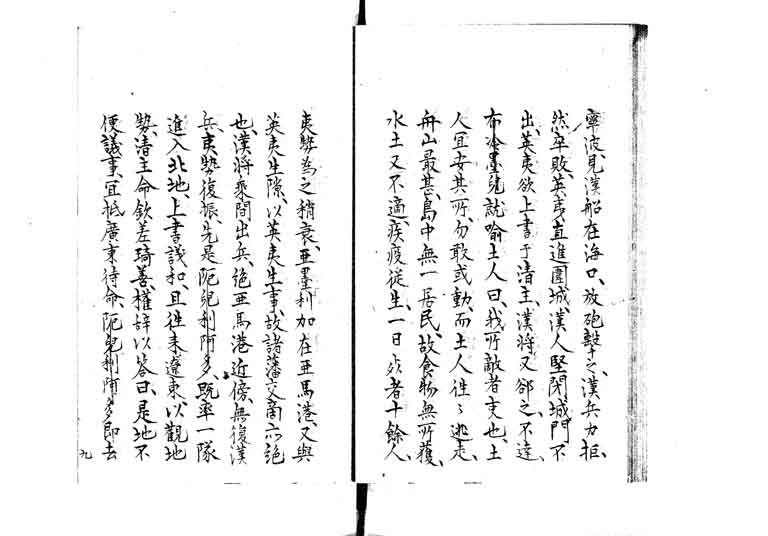 寧波、見漢船在海口、放砲擊之、漢兵力拒、
然卒敗、英夷直進圍城、漢人堅閉城門不
出、英夷欲上書于清主、漢將又郤之、不達、
布冷墨兒就喻土人曰、我所敵者吏也、土
人宜安其所、勿敢或動、而土人往〻逃走、
舟山最甚、島中無一居民、故食物無所獲、
水土又不適、疾疫従生、一日死者十餘人、
夷勢為之稍衰、亜墨利加在亜馬港、又與
英夷生隙、以英夷生事、故諸藩交商亦絶
也、漢將乘間出兵、絶亜馬港近傍、無復漢
兵、夷勢復振、先是阨兒利阿多、既率一隊
進入北地、上書議和、且往来遼東、以觀地
勢、清主命欽差琦善、權辞以答曰、是地不
便議事、宜抵廣東待命、阨兒利阿多即去
九